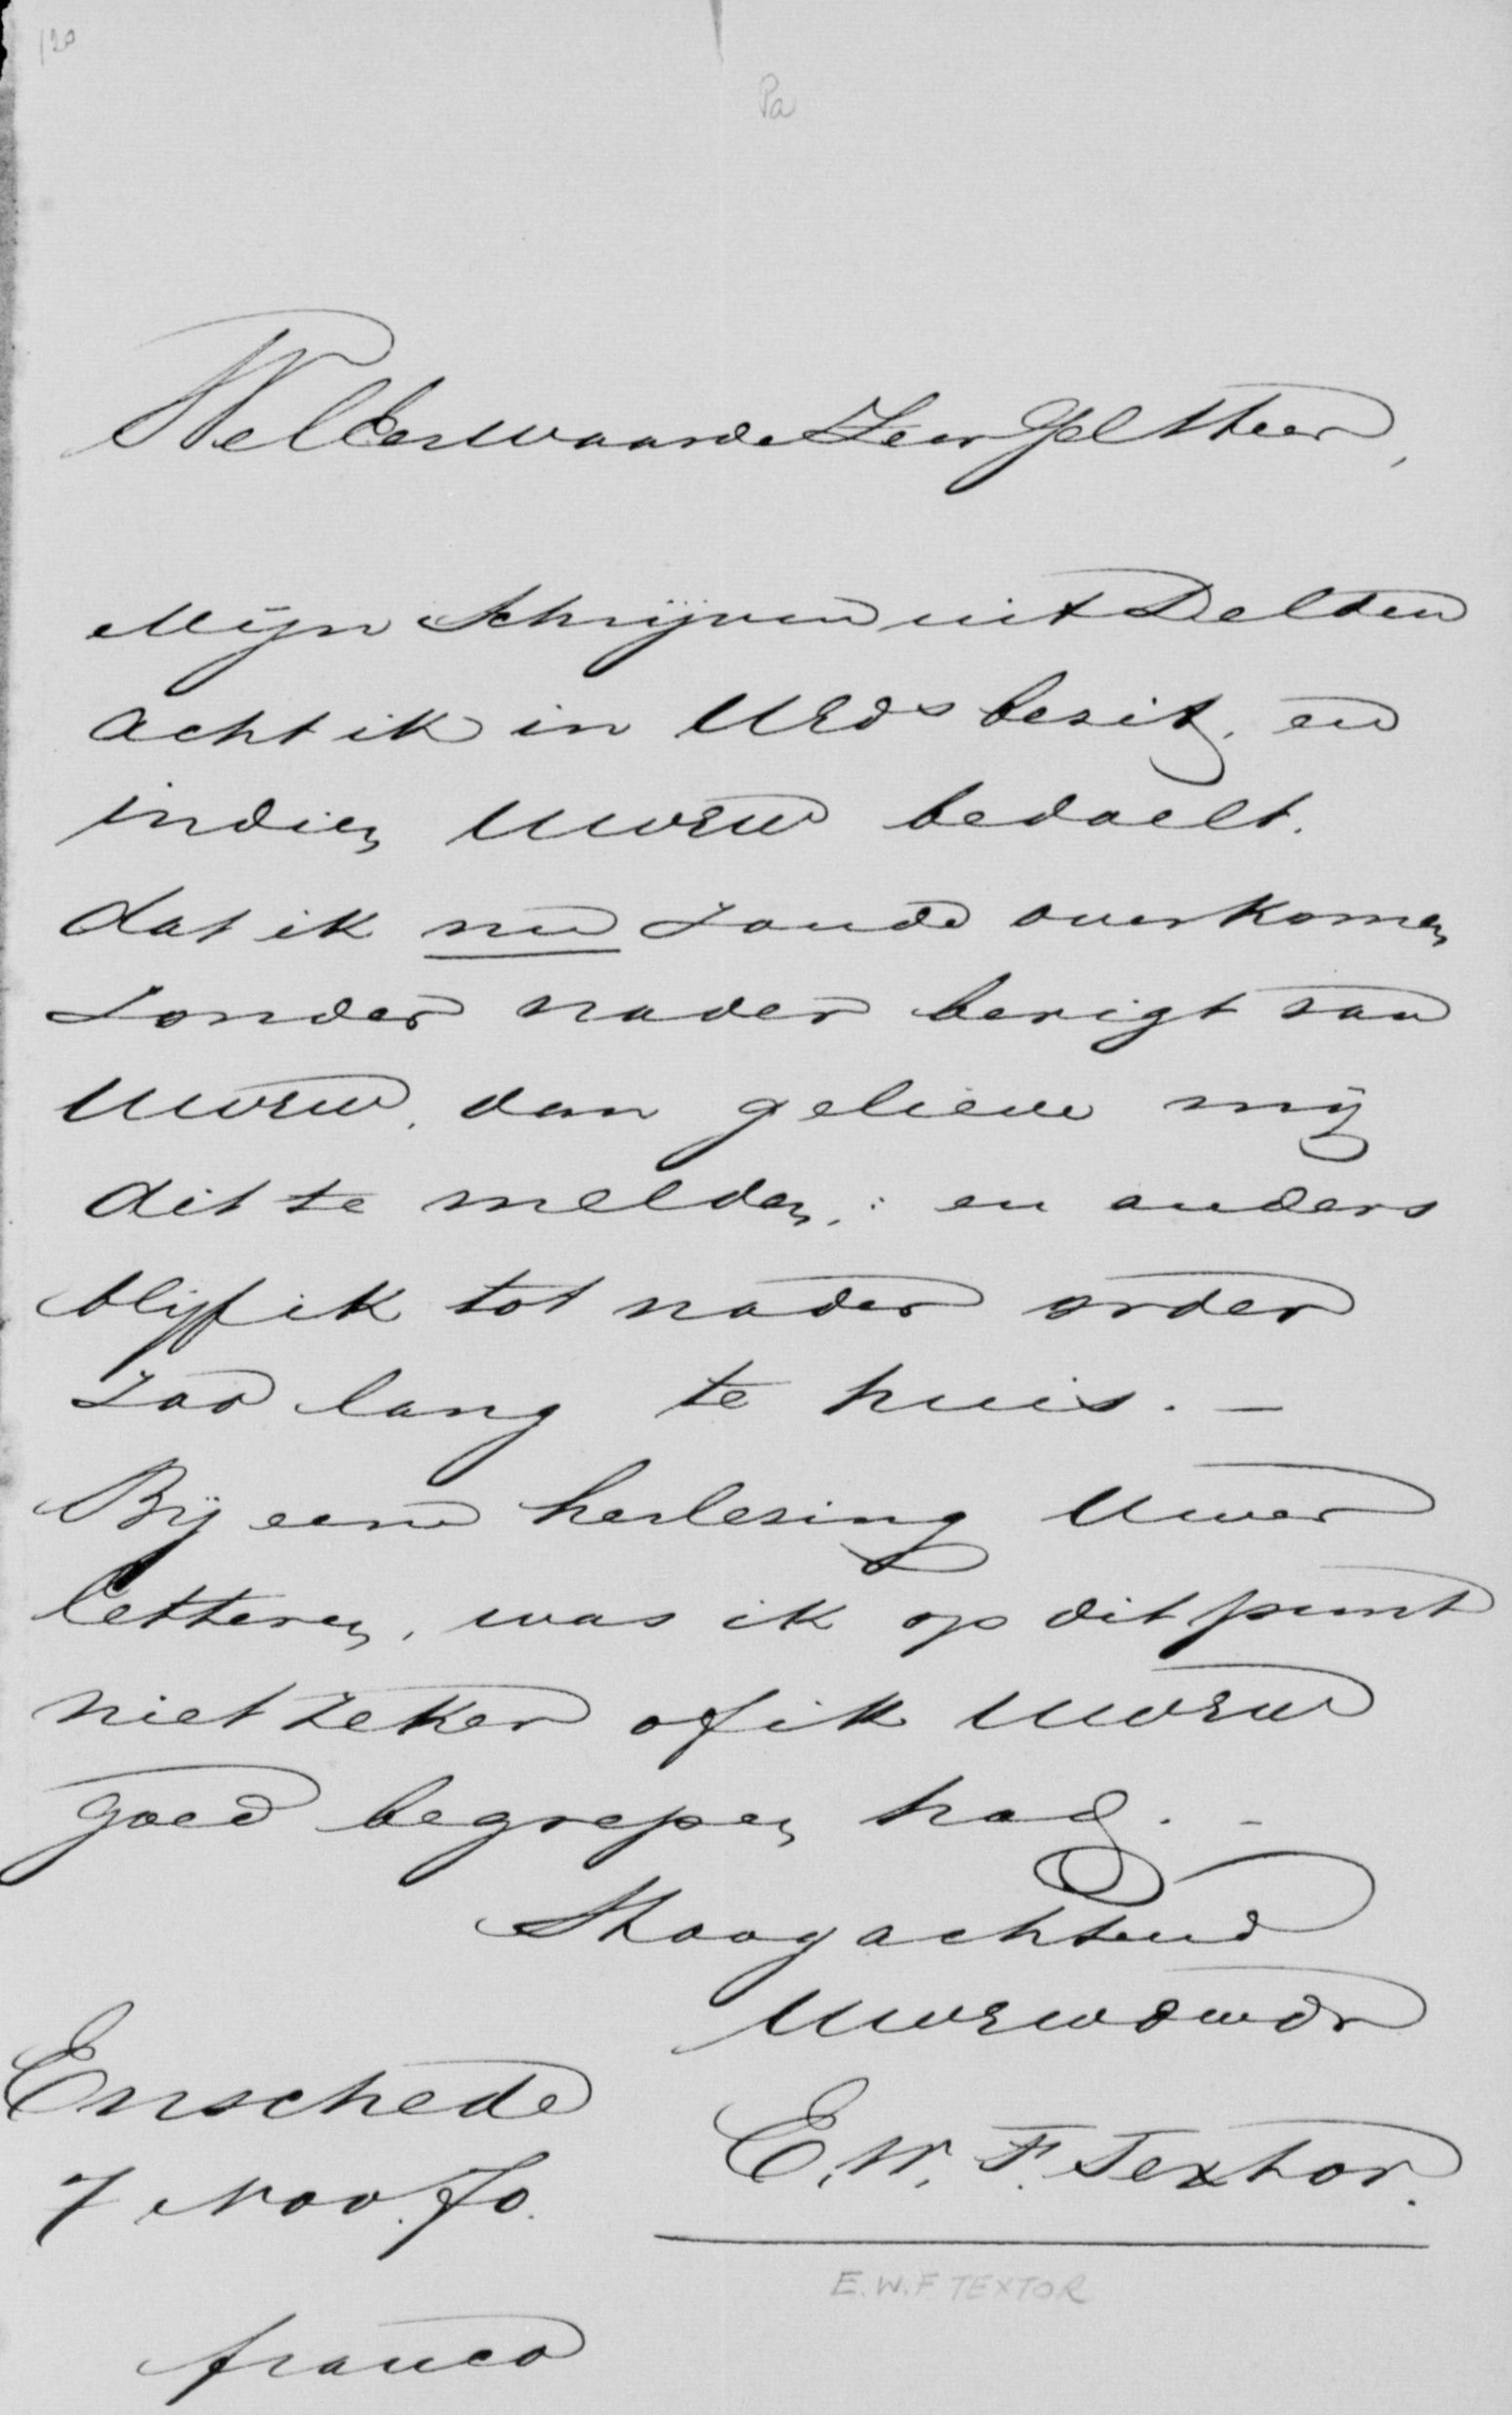 120
Pa
WelEerwaarde Zeer Gel Heer,
Mijn schrijven uit Delden
acht ik in UEds bezit, en
indien UwEw bedoelt.
dat ik nu zoude overkomen
zonder nader berigt van
UwEw, dan gelieve mij
dit te melden,: en anders
blijf ik tot nader order
zoo lang te huis. –
Bij eene herlezing Uwer
letteren, was ik op dit punt
niet zeker of ik UwEw
goed begrepen had. –
Hoogachtend
UwEwdwdr
Enschede
E. W. F. Textor.
7 Nov. 70.
E.W.F TEXTOR
franco